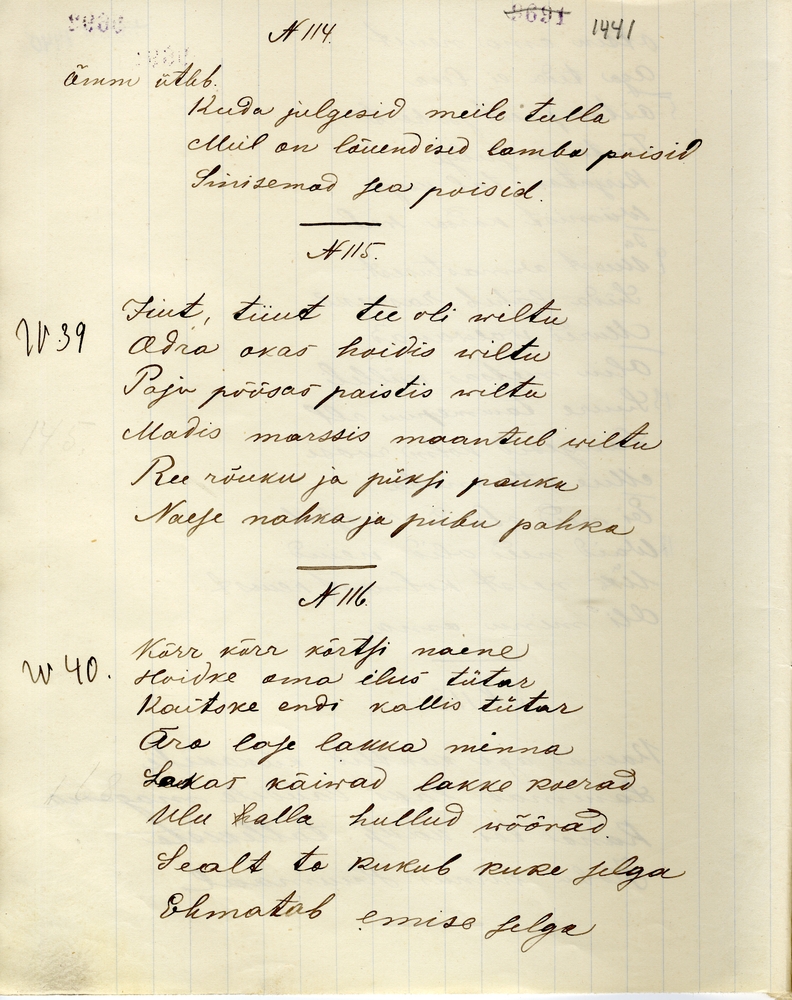 N 114.
1441
Ämm ütleb.
Kuda julgesid meile tulla
Meil on lõuendised lamba poisid
Sinisemad sea poisid.
N 115.
Tiut, tiiut tee oli wiltu
W 39
Odra okas hoidis wiltu
Paju põõsas paistis wiltu
Madis marssis maantul wiltu
Ree rõuku ja püksi pauka
Naese nahka ja piibu pahka
N 116.
Kõrr kõrr kõrtsi naene
W 40.
Hoidke oma ilus tütar
Kaitske endi kallis tütar
Ära lase lakka minna
Lakas käiwad lakke koerad
Ulu halla hullud wõõrad.
Sealt ta kukub kuke selga
Ehmatab emise selga